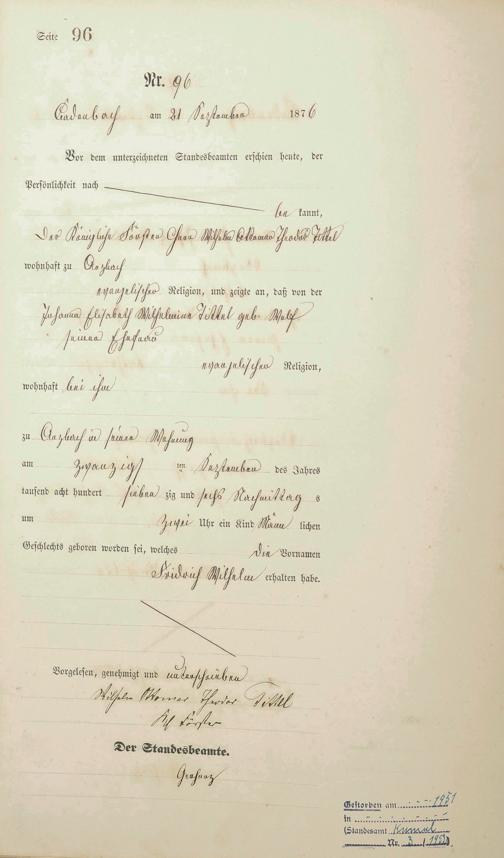 Seite 96
Nr. 96
Cadenbach am 21 September 1876
Vor dem unterzeichneten Standesbeamten erschien heute, der
Persönlichkeit nach
be kannt,
Der Königliche Förster Wilhelm Ottomar Theodor Tittel
wohnhaft zu Arzbach
evangelischer Religion, und zeigte an, daß von der
Johanna Elisabeth Wilhelmine Tittel geb. Wolf
seiner Ehefrau
evangelischer Religion,
wohnhaft bei ihm
zu Arzbach in seiner Wohnung
am zwanzigsten September des Jahres
tausend acht hundert sieben zig und sechs Nachmittag s
um zwei Uhr ein Kind männ lichen
Geschlechts geboren worden sei, welches die Vornamen
Fridrich Wilhelm erhalten habe.
Vorgelesen, genehmigt und unterschrieben
Wilhelm Ottomar Theodor Tittel
Kgl Förster
Der Standesbeamte.
Gestorben am 1951
in
(Standesamt
Nr. 3 / 1951)